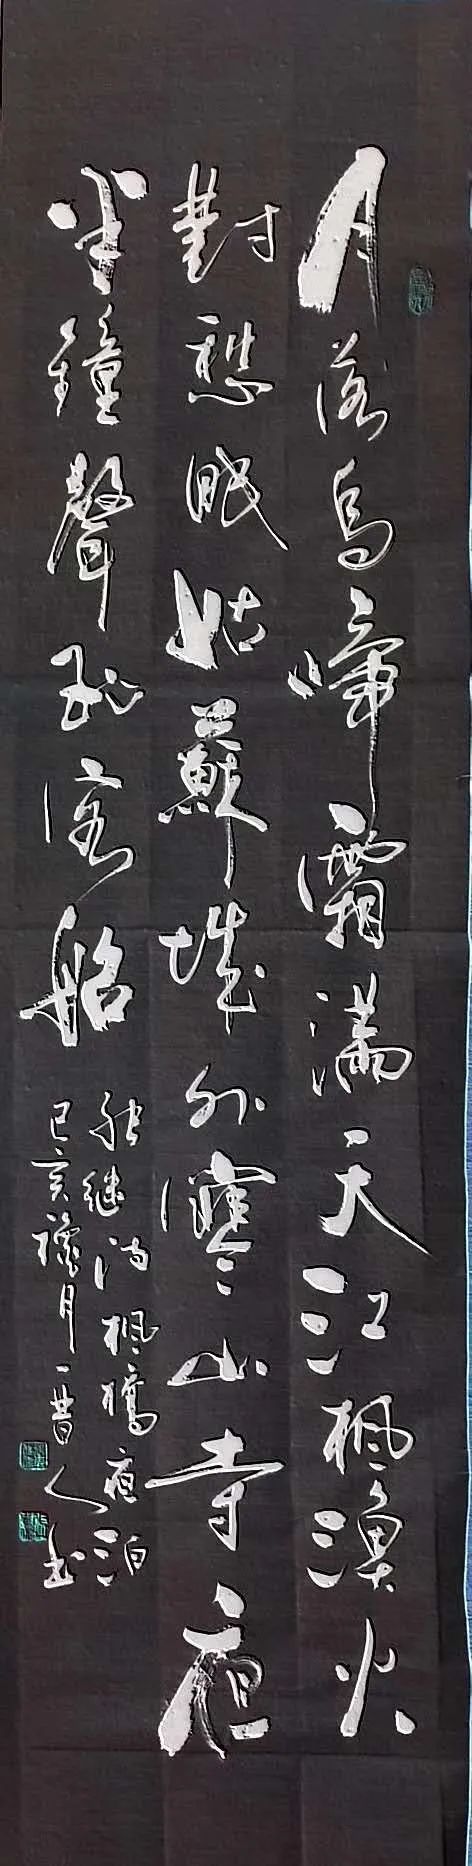 月落烏啼霜滿天江楓漁火
對愁眠姑蘇城外寒山寺夜
半鐘聲到客船
張继诗楓橋夜泊
己亥月人书